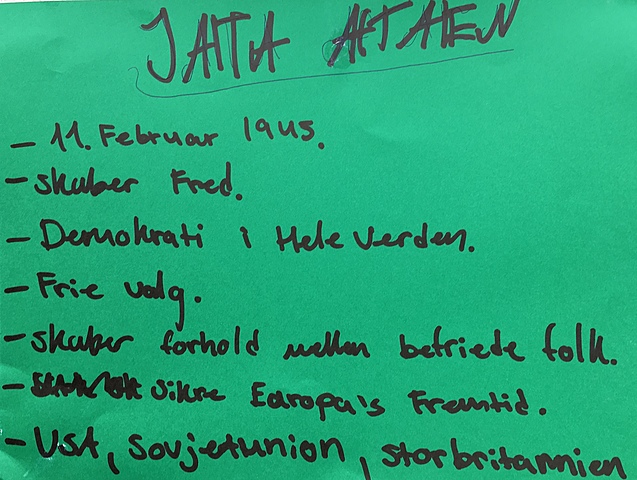 JALTA AFTALEN
- 11. Februar 1945.
- skaber Fred.
- Demokrati i Hele Verden.
- Frie valg.
- skaber forhold mellem befriede folk.
- sikre Europa's Fremtid.
- USA, Sovjetunion, storbritannien